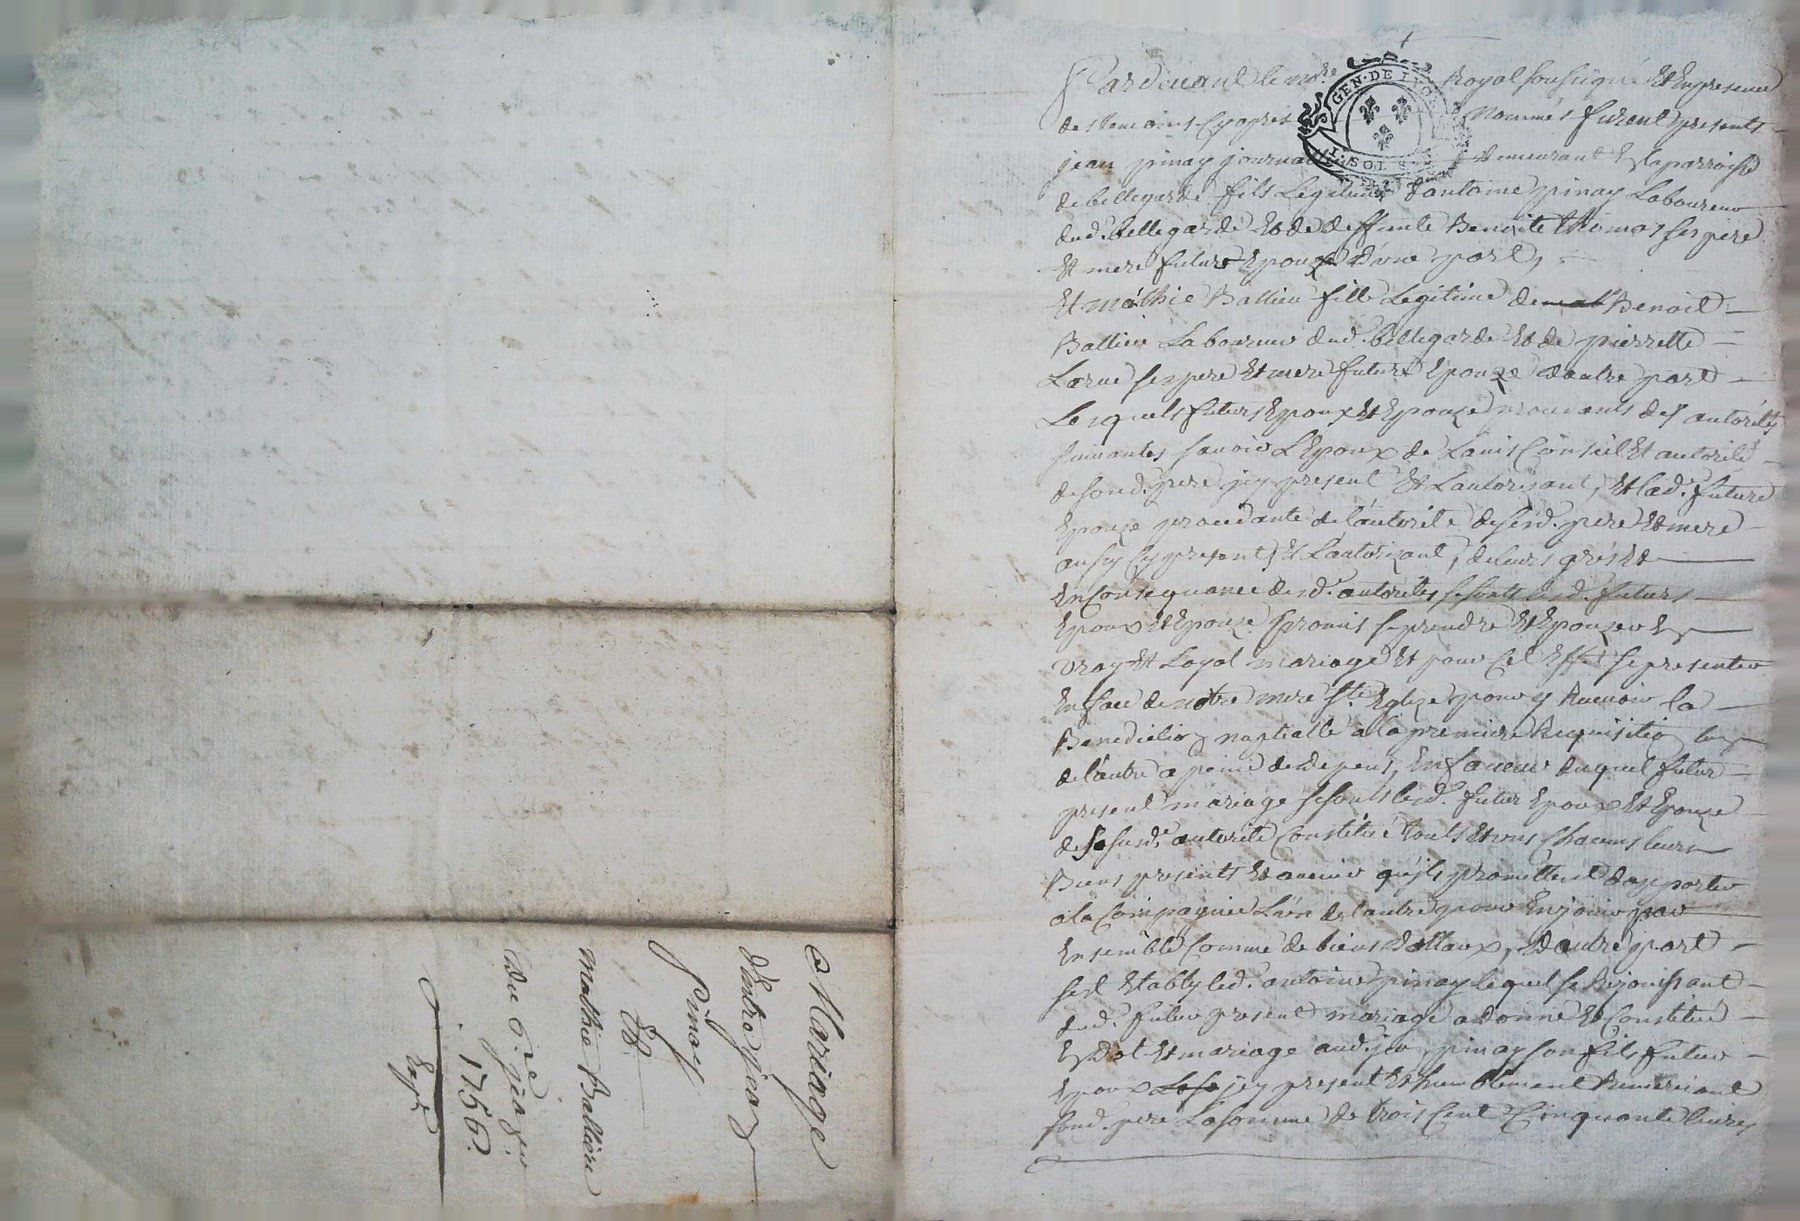 Pardevant le no.re Royal soussigné Et En presence
des temoins Cy apres Nommés furent presents
jean pinay journalier demeurant En la parroisse
de bellegarde fils Legitime d'antoine pinay Laboureur
dud. bellegarde Et de deffunte Benoite thomas ses pere
Et mere futur Epoux d'une part,
Et mathie Ballieu fille Legitime de Benoit
Ballieu Laboureur dud. bellegarde Et de pierrette
Lornе ses pere Et mere future Epouze dautre part
Lesquels futurs Epoux Et Epouze procedants des autorités
suivantes savoir L'Epoux de L'avis Conseil Et autorité
de son d. pere icy present Et L'autorisant, Et lad. future
Epouze procedante de l'autorité de sesd. pere Et mere
aussy Cy present Et L'autorizant, de leurs grés Et
En Consequance desd. autorités se sont lesd. futurs
Epoux Et Epouze promis se prendre Et Epouzer En
vray Et Loyal mariage Et pour Cet Effet se presenter
En face de notre mere ste. Eglize pour y Recevoir la
Benediction nuptialle a la premiere Requisition lun
de l'autre a peine de depens, En faveur duquel futur
present mariage se sont lesd. futur Epoux Et Epouze
de sa susd. autorité Constitué touts Et uns Chacuns leurs
Biens presents Et avenir qu'ils promettent d'apporter
a la Compagnie L'un de l'autre pour En jouir par
Ensemble Comme de biens dottaux, D'autre part
sest Etably led. antoine pinay lequel se Rejouissant
dud. futur present mariage a donné Et Constitué
En Dot Et mariage aud. jean pinay son fils futur
Epoux icy present Et humblement Remerciant
sond. pere La somme de trois Cent Cinquante livres
GEN. DE LYON
SOL
Mariage
d'Entre jean
Pinay
Et
mathie Ballieu
du 6.e
1756.